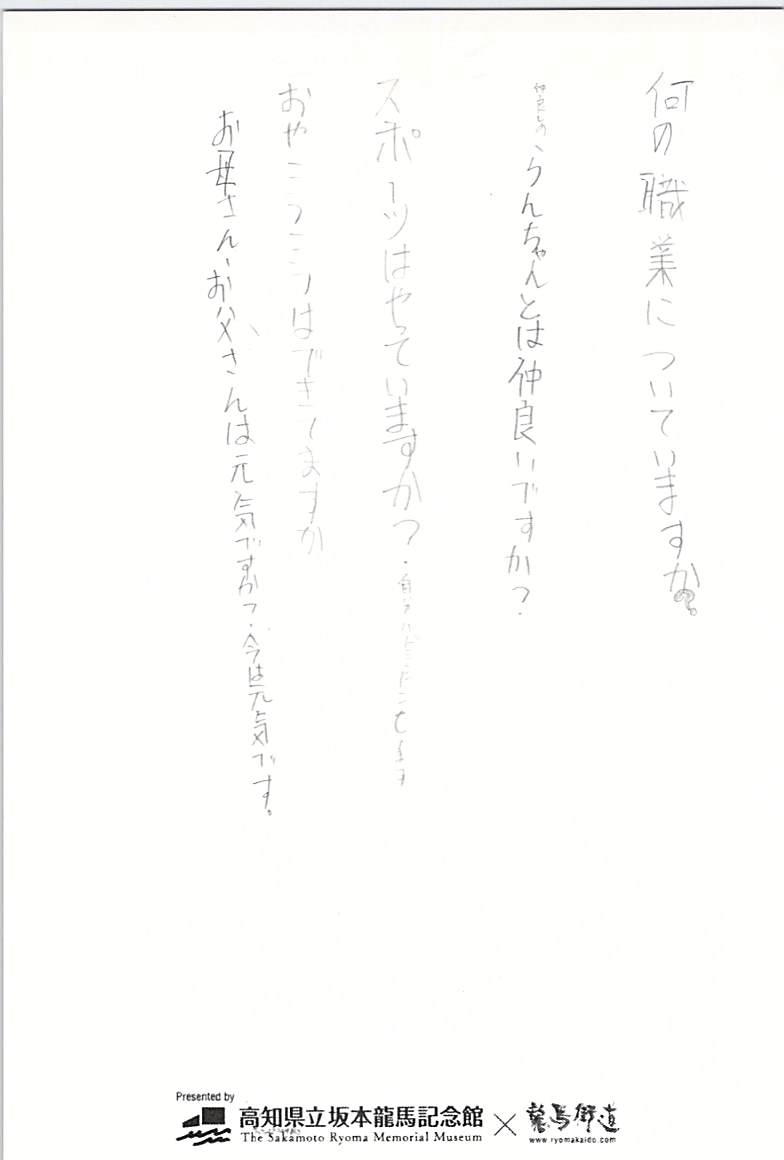 何の職業についていますか。
仲良しの、らんちゃんとは仲良いですか?
スポーツはやっていますか?・自分はバドミントン
おやこうこうはできてますか
お母さん、お父さんは元気ですか?・今は元気です。
Presented by
高知県立坂本龍馬記念館×龍馬街道
The Sakamoto Ryoma Memorial Museum
www.ryomakaido.com